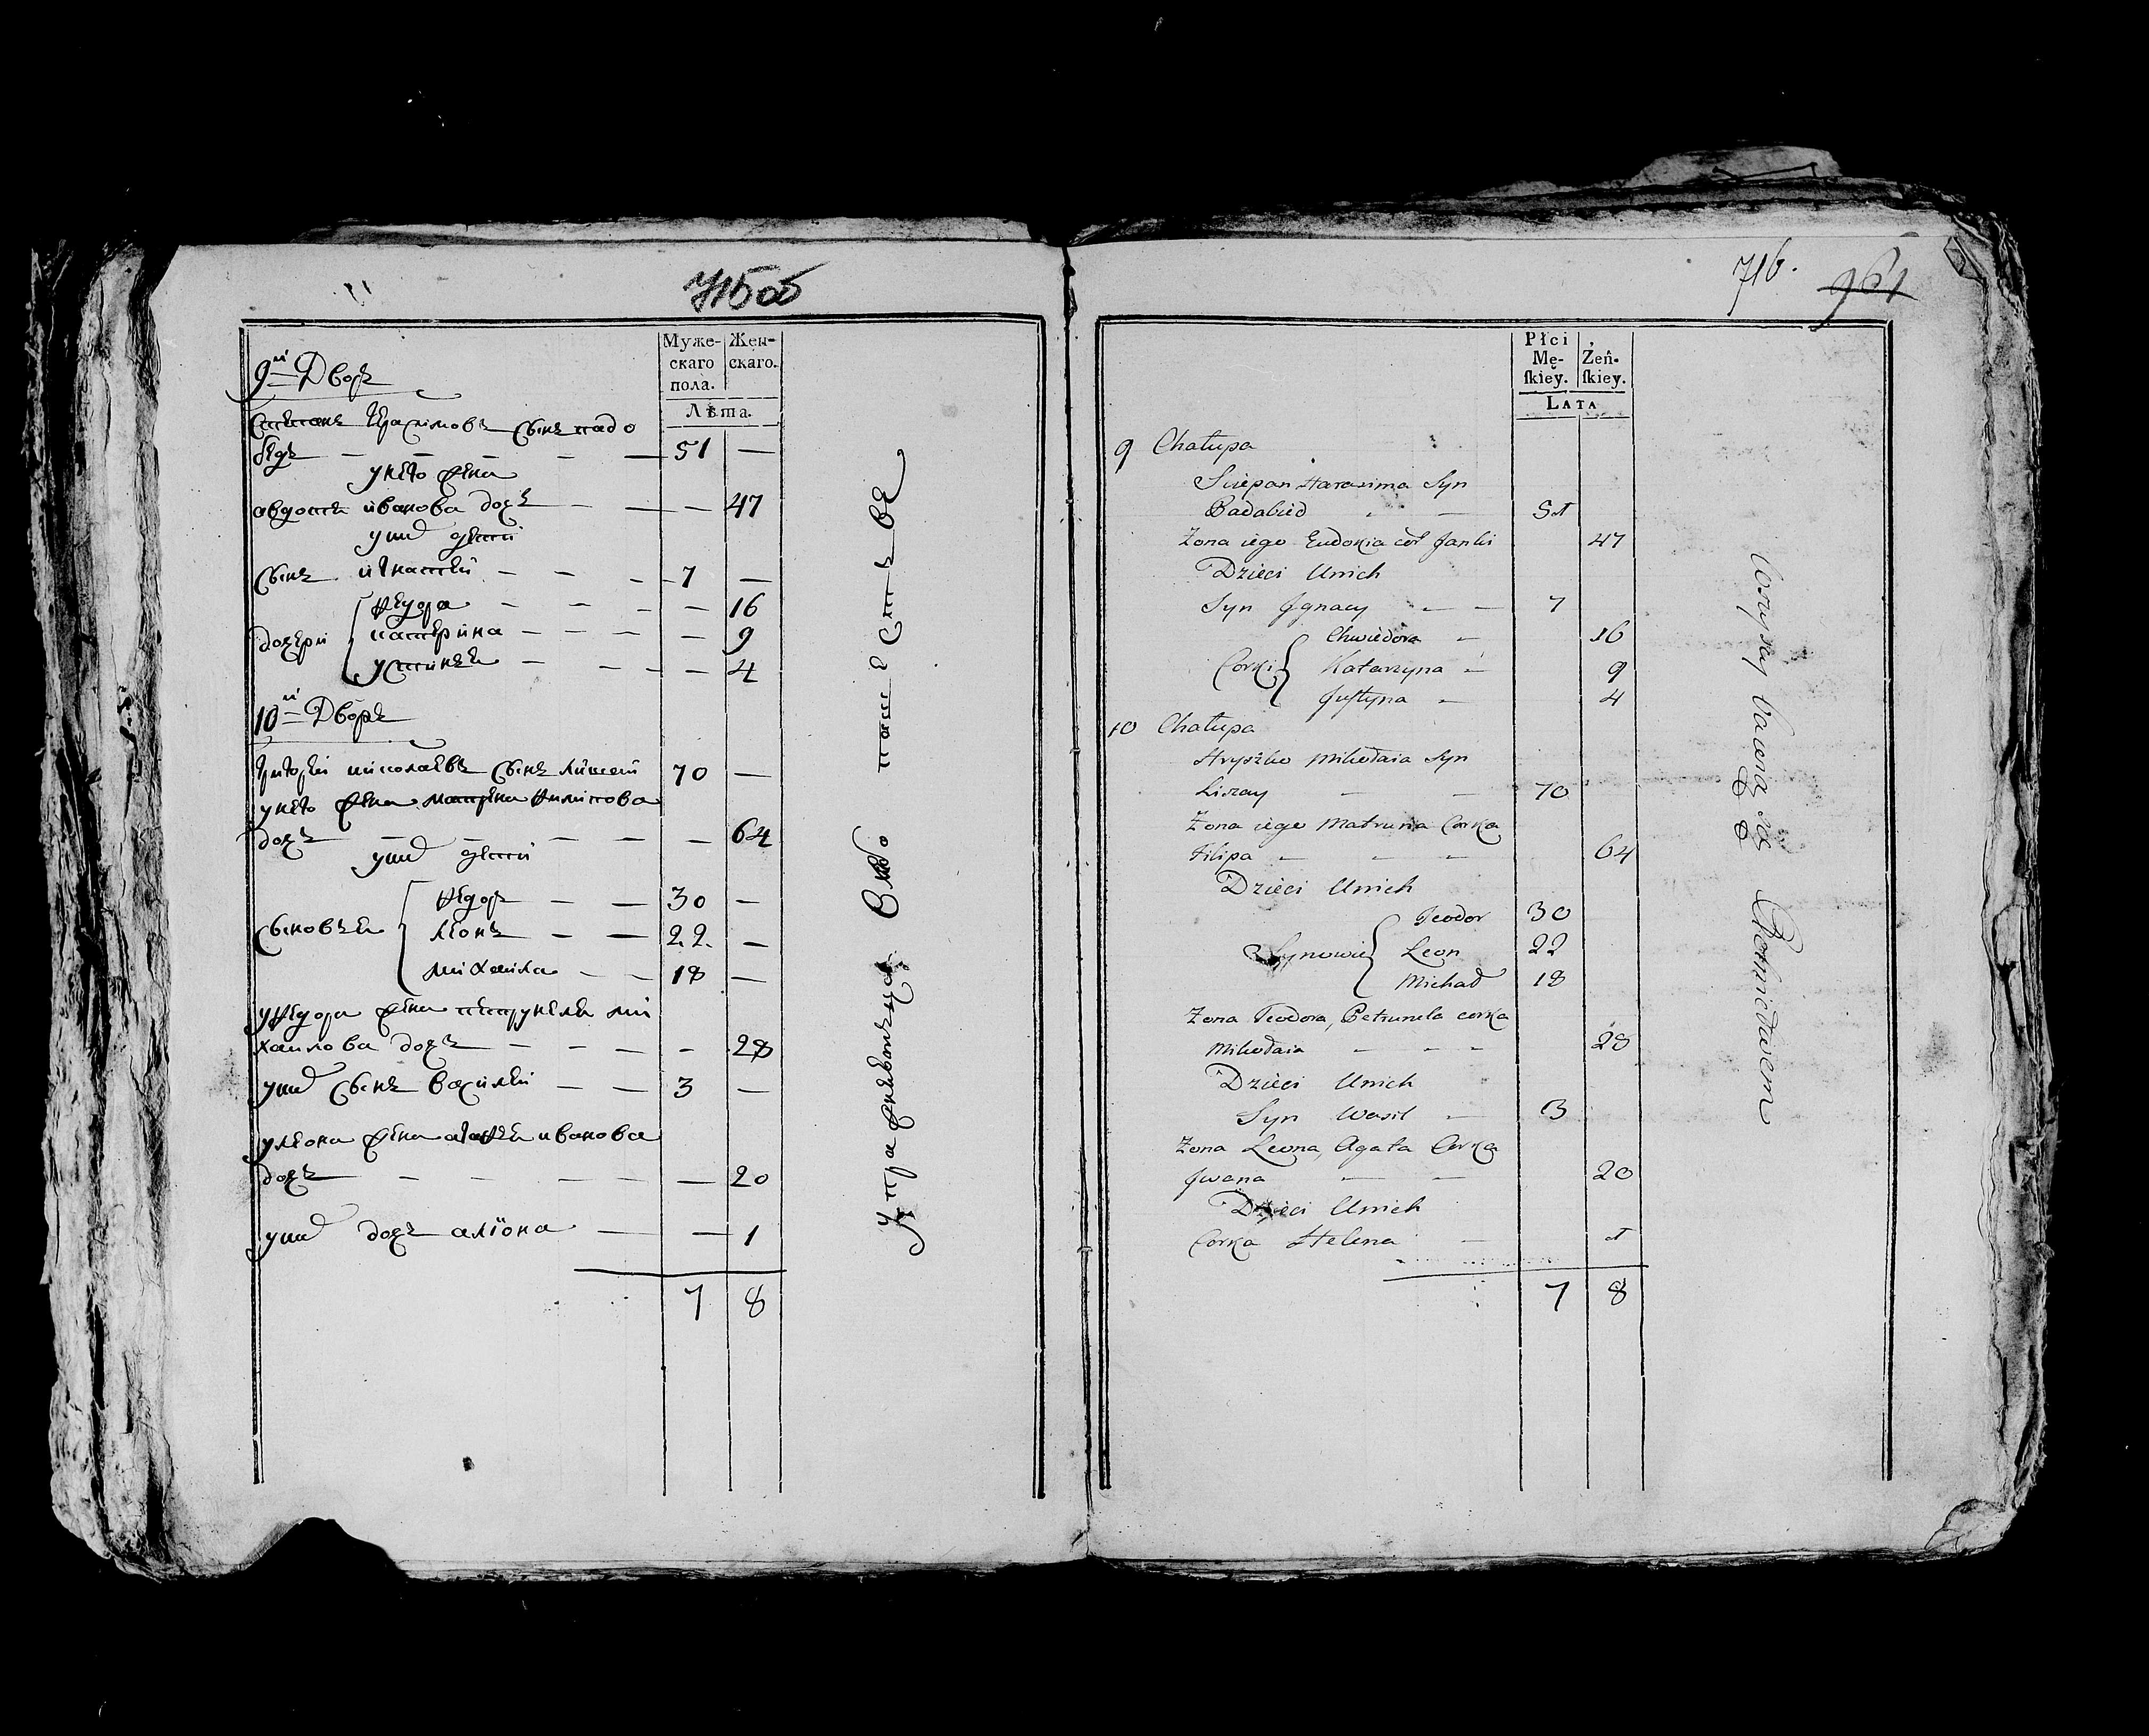 715об
Муже-
скаго
пола.
Жен-
скаго.
Лѣта.
9й Дворъ
Степанъ Герасимовъ сынъ падо
бедъ — 51 —
у него жена
авдотя иванова дочь — — 47
у них дети
сынъ игнатей — 7 —
дочери федора — — 16
катерина — — 9
устинья — — 4
10й Дворъ
григорей николаевъ сынъ лишей 70 —
у него жена матрена филипова
дочь — — 64
у них дети
сыновья федоръ — 30 —
леонъ — 22 —
михаила — 18 —
у федора жена петрунеля ми
хаилова дочь — — 28
у них сынъ василей — 3 —
у леона жена агафья иванова
дочь — — 20
у них дочь алiона — — 1
7 8
716.
961
Płci
Mę-
skiey.
Żeń-
skiey.
LATA
9 Chałupa
Sciepan Harasima Syn
Badabied — 51
Zona iego Eudokia cór Janki 47
Dzieci Unich
Syn Jgnacy — 7
Corki Chwiedora — 16
Katarzyna — 9
Justyna — 4
10 Chałupa
Hryszko Mikołaia Syn
Liszay — 70
Zona iego Matruna Corka
Filipa — 64
Dzieci Unich
Synowie Teodor 30
Leon 22
Michał 18
Zona Teodora, Petrunela corka
Mikołaia — 28
Dzieci Unich
Syn Wasil — 3
Zona Leona, Agata Corka
Jwana — 20
Dzieci Unich
Corka Helena — 1
7 8